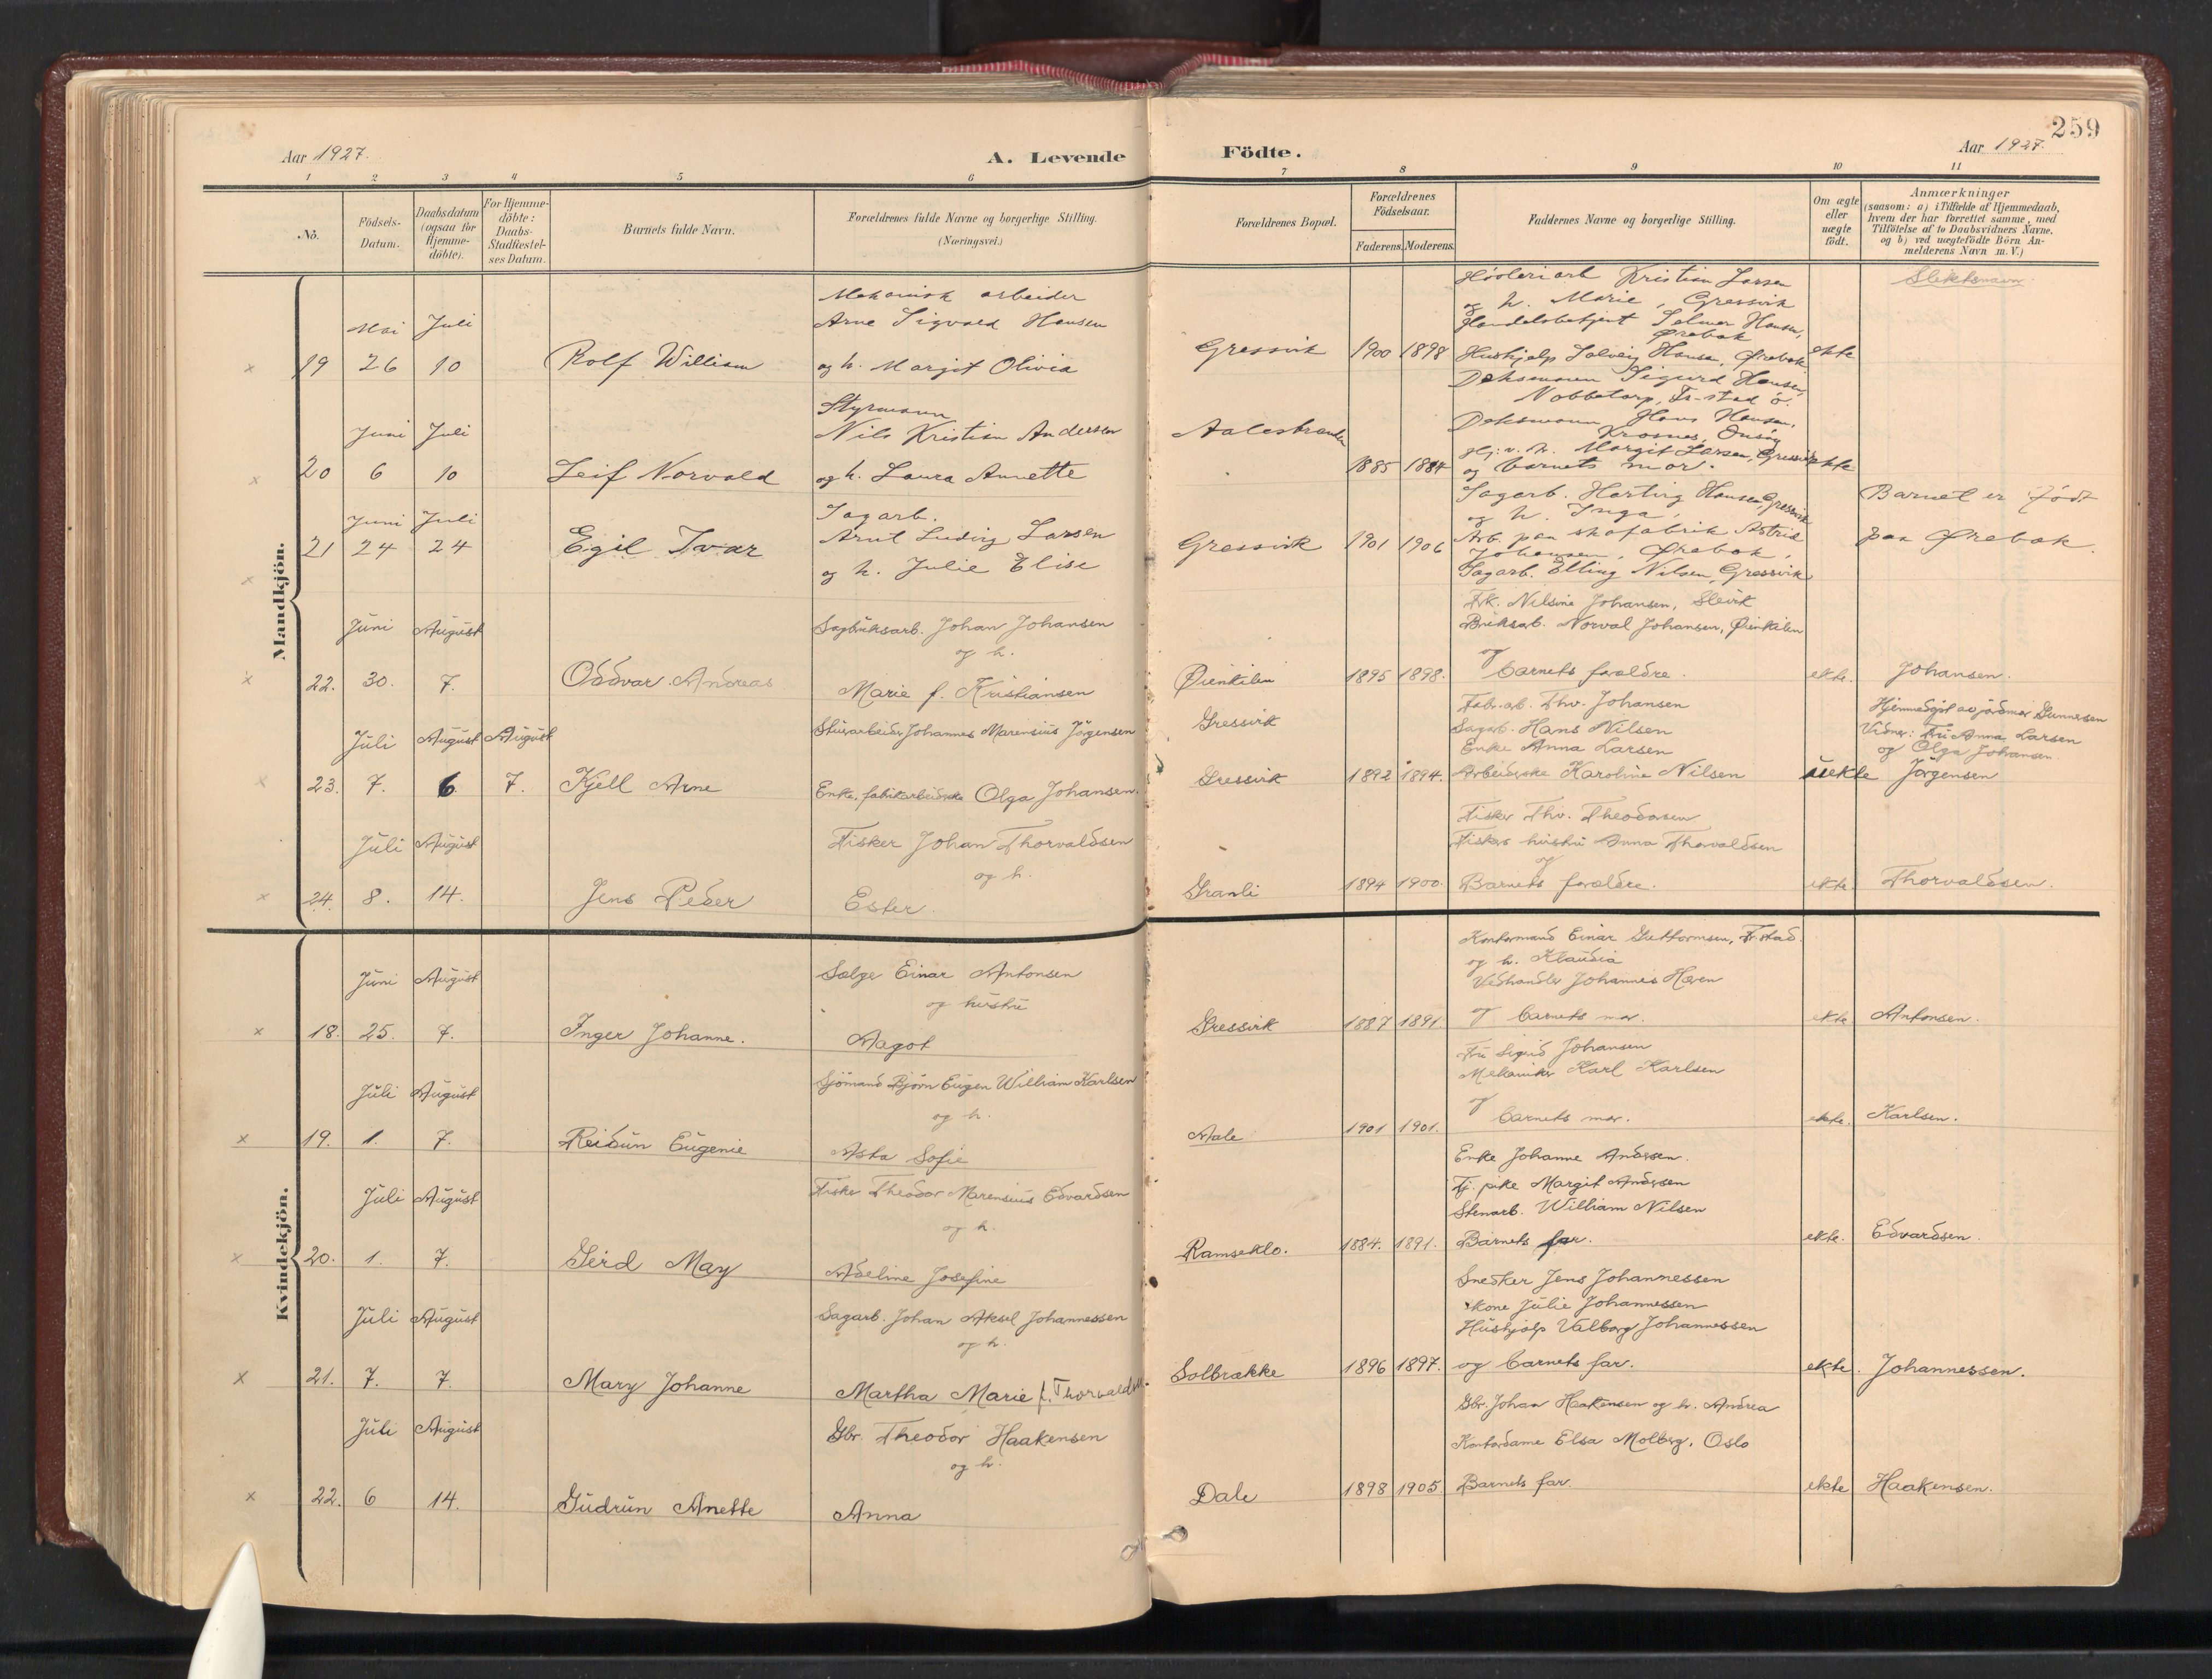 259
Aar 1927.
A. Levende Födte.
Aar 1927.
1 2 3 4 5 6 7 8 9 10 11
Nô.
Födsels-Datum.
Daabsdatum (ogsaa för Hjemme-döbte).
For Hjemme-döbte: Daabs-Stadfæstel-ses Datum.
Barnets fulde Navn.
Forældrenes fulde Navne og borgerlige Stilling.
(Næringsvei.)
Forældrenes Bopæl.
Forældrenes Födselsaar.
Faderens. Moderens.
Faddernes Navne og borgerlige Stilling.
Om ægte eller uægte födt.
Anmærkninger
(saasom: a) i Tilfælde af Hjemmedaab, hvem der har forrettet samme, med Tilföielse af to Daabsvidners Navne, og b) ved uægtefödte Börn An-melderens Navn m. V.)
Slektsnavn
Mandkjön.
19
Mai 26
Juli 10
Rolf William
Mekanisk arbeider
Arne Sigvald Hansen
og h. Margit Olivia
Gressvik
1900 1898
Høvleriarb Kristian Larsen
og h. Marie, Gressvik
Handelsbetjent Selmer Hansen,
Ørebæk
Hushjelp Solveig Hansen, Ørebæk
Deksmann Sigurd Hansen,
Nabbetorp, Fr-stad ö.
ekte
20
Juni 6
Juli 10
Leif Norvald
Styrmann
Nils Kristian Andersen
og h. Laura Annette
Aalestranden
1885 1884
Deksmann Hans Hansen,
Krosnes, Onsøy
Margit Larsen, Gressvik
og barnets mor.
ekte
21
Juni 24
Juli 24
Egil Ivar
Sagarb.
Arnt Ludvig Larsen
og h. Julie Elise
Gressvik
1901 1906
Sagarb. Harting Hansen, Gressvik
og h. Inga,
Arb. paa skofabrik Astrid
Johansen, Ørebæk,
Sagarb. Elling Nilsen, Gressvik
Barnet er født
paa Ørebæk.
22.
Juni 30.
August 7.
Oddvar Andreas
Sagbruksarb. Johan Johansen
og h.
Marie f. Kristiansen
Øienkilen
1895 1898.
Frk. Nilsine Johansen, Slevik
Bruksarb. Norval Johansen, Øienkilen
og
barnets forældre.
ekte.
Johansen.
23.
Juli 7.
August 6
August 7.
Kjell Arne
Stuearbeider Johannes Marensius Jörgensen
Enke, fabrikarbeiderske Olga Johansen.
Gressvik
Gressvik
1892 1894.
Fabr.arb. Thv. Johansen
Sagarb. Hans Nilsen
Enke Anna Larsen
Arbeiderske Karoline Nilsen
uekte
Hjemmedöpt av jordmor Gunnesen
Vidner: Fru Anna Larsen
og Olga Johansen.
Jörgensen
24.
Juli 8.
August 14.
Jens Peder
Fisker Johan Thorvaldsen
og h.
Ester.
Granli
1894 1900.
Fisker Thv. Theodorsen
Fiskers hustru Anna Thorvaldsen
og
Barnets forældre.
ekte
Thorvaldsen.
Kvindekjön.
18.
Juni 25.
August 7.
Inger Johanne.
Sælge Einar Antonsen
og hustru
Aagot
Gressvik
1887 1891
Kontormand Einar Guttormsen, Fr.stad.
og h. Klaudia
Vedhandler Johannes Haren
og barnets mor.
ekte
Antonsen.
19.
Juli 1.
August 7.
Reidun Eugenie
Sjömand Björn Eugen William Karlsen
og h.
Asta Sofie
Aale
1901 1901.
Fru Sigrid Johansen
Mekaniker Karl Karlsen
og
barnets mor.
ekte.
Karlsen.
20.
Juli 1.
August 7.
Gerd May
Fisker Theodor Marensius Edvardsen
og h.
Adeline Josefine
Ramseklo.
1884. 1891.
Enke Johanne Andersen.
Tj. pike Margit Andersen
Stenarb. William Nilsen
Barnets far.
ekte.
Edvardsen.
21.
Juli 7.
August 7.
Mary Johanne
Sagarb. Johan Aksel Johannessen
og h.
Martha Marie f. Thorvaldsen.
Solbrække
1896 1897.
Snedker Jens Johannessen
kone Julie Johannessen
Hushjælp Valborg Johannessen
og barnets far.
ekte.
Johannessen.
22.
Juli 6
August 14.
Gudrun Anette
Gbr. Theodor Haakensen
og h.
Anna
Dale
1898 1905
Gbr. Johan Haakensen og h. Andrea
Kontordame Elsa Molberg, Oslo
Barnets far.
ekte
Haakensen.